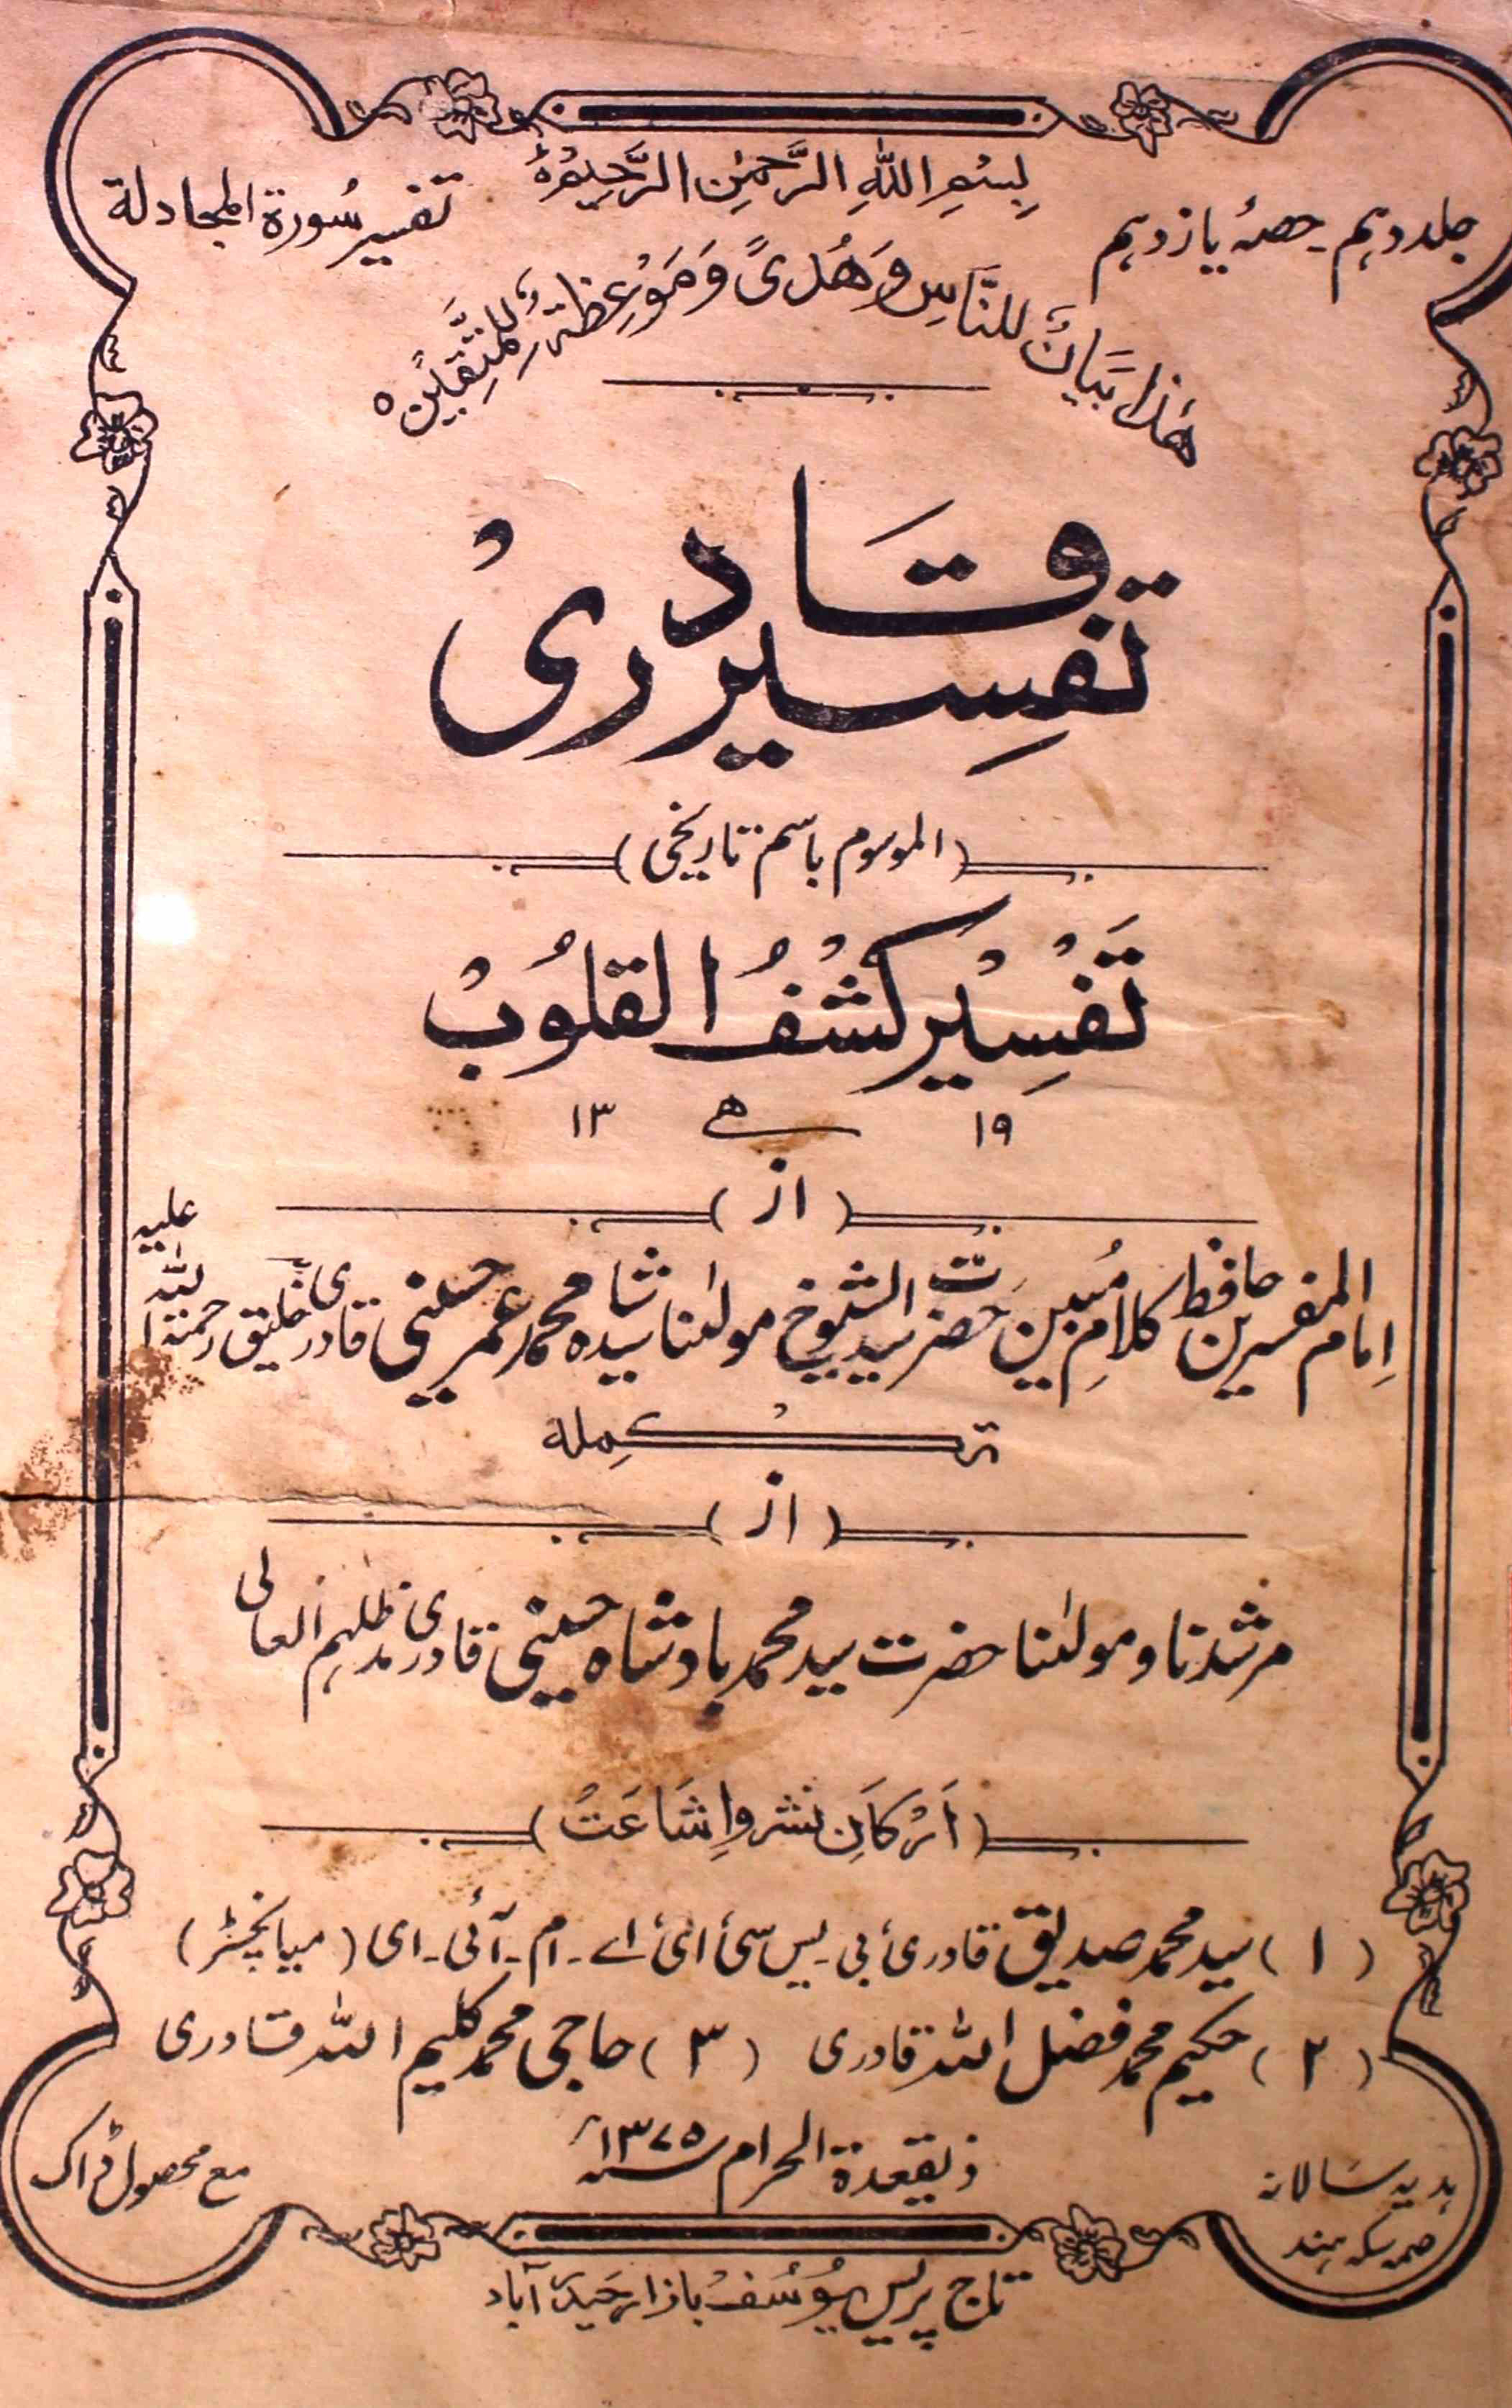 بِسْمِ اللهِ الرَّحْمٰنِ الرَّحِيْمِ
جلد دہم۔ حصہٴ یازدہم
تفسیر سُورۃ المجادلة
هٰذَا بَيَانٌ لِلنَّاسِ وَهُدًى وَمَوْعِظَةٌ لِّلْمُتَّقِيْنَ ہ
تفسِیر قادری
(الموسوم باسم تاریخی)
تَفْسِیْر کَشْفُ القلُوبْ
۱۹ ھ ۱۳
(از)
اِمام المفسرین حافظ کلامِ مُبین حضرت سید الشیوخ مولٰنا سید شاہ محمد عمر حسینی قادری خلیق رحمۃ اللہ علیہ
تکمِلہ
(از)
مرشدنا و مولٰنا حضرت سید محمد بادشاہ حسینی قادری مدظلہم العالی
(اَرْکَانِ نشر و اِشَاعَتْ)
(۱) سید محمد صدیق قادری بی۔یس سی ائی اے۔ ام۔ آئی۔ ای (میانیجر)
(۲) حکیم محمد فضل اللہ قادری (۳) حاجی محمد کلیم اللہ قادری
ذیقعدۃ الحرام ۱۳۷۵؁ھ
ہدیہ سالانہ
سکہ ہند
مع محصول ڈاک
تاج پریس یُوسُف بازار حیدرآباد